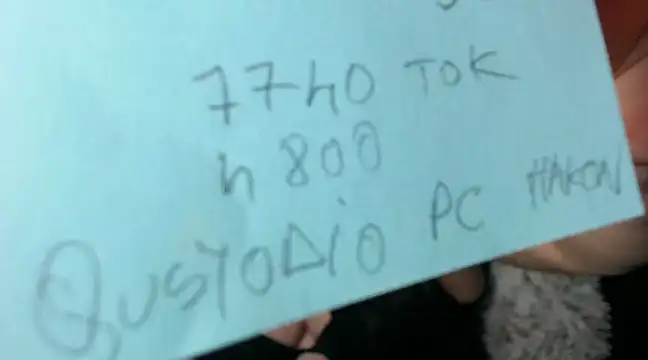 7740 TOK
h 800
QUSTODIO PC HAKON